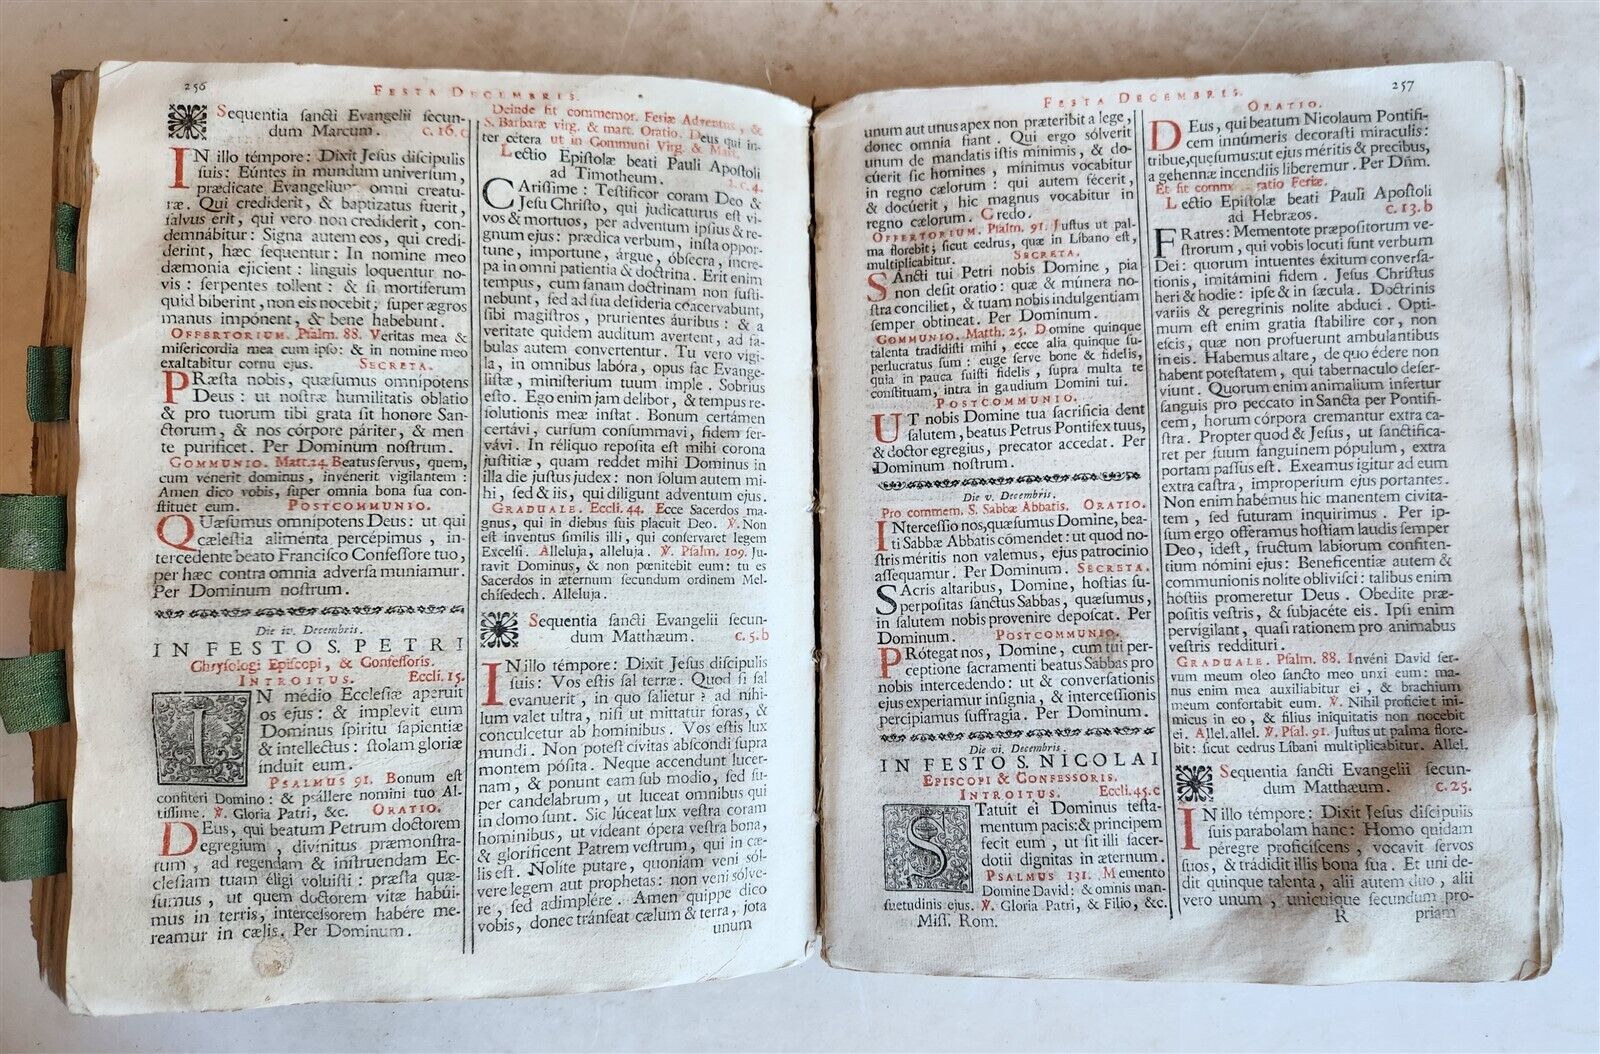 256
FESTA DECEMBRIS.
Sequentia sancti Evangelii secun-
dum Marcum. c. 16. c
IN illo témpore: Dixit Jesus discipulis
suis: Eúntes in mundum universum,
prædicate Evangelium omni creatu-
ræ. Qui crediderit, & baptizatus fuerit,
salvus erit, qui vero non crediderit, con-
demnábitur: Signa autem eos, qui credi-
derint, hæc sequentur: In nomine meo
dæmonia ejicient: linguis loquentur no-
vis: serpentes tollent: & si mortiferum
quid biberint, non eis nocebit; super ægros
manus impónent, & bene habebunt.
OFFERTORIUM. Psalm. 88. Veritas mea &
misericordia mea cum ipso: & in nomine meo
exaltabitur cornu ejus. SECRETA.
PRæsta nobis, quæsumus omnipotens
Deus: ut nostræ humilitatis oblatio
& pro tuorum tibi grata sit honore San-
ctorum, & nos córpore páriter, & men
te purificet. Per Dominum nostrum.
COMMUNIO. Matt. 24. Beatus servus, quem,
cum venerit dominus, invénerit vigilantem:
Amen dico vobis, super omnia bona sua con-
stituet eum. POSTCOMMUNIO.
QUæsumus omnipotens Deus: ut qui
cælestia aliménta percépimus, in-
tercedente beato Francisco Confessore tuo,
per hæc contra omnia adversa muniamur.
Per Dominum nostrum.
Die iv. Decembris.
IN FESTO S. PETRI
Chrysologi Episcopi, & Confessoris.
INTROITUS. Eccli. 15.
IN médio Ecclesiæ aperuit
os ejus: & implevit eum
Dominus spiritu sapientiæ
& intellectus: stolam gloriæ
induit eum.
PSALMUS 91. Bonum est
confiteri Domino: & psállere nomini tuo Al-
tissime. ℣. Gloria Patri, &c. ORATIO.
DEus, qui beatum Petrum doctorem
egregium, divinitus præmonstra-
tum, ad regendam & instruendam Ec-
clesiam tuam éligi voluisti: præsta quæ-
sumus, ut quem doctorem vitæ habúi-
mus in terris, intercessorem habére me-
reamur in cælis. Per Dominum.
Deinde fit commemor. Feriæ Adventus, &
S. Barbaræ virg. & mart. Oratio. Deus qui in-
ter cétera ut in Communi Virg. & Mart.
Lectio Epistolæ beati Pauli Apostoli
ad Timotheum. 2. c. 4.
CArissime: Testificor coram Deo &
Jesu Christo, qui judicaturus est vi-
vos & mortuos, per adventum ipsius & re-
gnum ejus: prædica verbum, insta oppor-
tune, importune, árgue, obsecra, íncre-
pa in omni patientia & doctrina. Erit enim
tempus, cum sanam doctrinam non susti-
nebunt, sed ad sua desideria coácervabunt,
sibi magistros, prurientes áuribus: & a
veritate quidem auditum avertent, ad fa-
bulas autem convertentur. Tu vero vigi-
la, in omnibus labóra, opus fac Evange-
listæ, ministerium tuum imple. Sobrius
esto. Ego enim jam delibor, & tempus re-
solutionis meæ instat. Bonum certámen
certávi, cursum consummavi, fidem ser-
vávi. In réliquo reposita est mihi corona
justitiæ, quam reddet mihi Dominus in
illa die justus judex: non solum autem mi-
hi, sed & iis, qui diligunt adventum ejus.
GRADUALE. Eccli. 44. Ecce Sacerdos ma-
gnus, qui in diebus suis placuit Deo. ℣. Non
est inventus similis illi, qui conservaret legem
Excelsi. Alleluja, alleluja. ℣. Psalm. 109. Ju-
ravit Dominus, & non pœnitebit eum: tu es
Sacerdos in æternum secundum ordinem Mel-
chísedech. Alleluja.
Sequentia sancti Evangelii secun-
dum Matthæum. c. 5. b
IN illo témpore: Dixit Jesus discipulis
suis: Vos estis sal terræ. Quod si sal
evanuerit, in quo salietur? ad nihi-
lum valet ultra, nisi ut mittatur foras, &
conculcetur ab hominibus. Vos estis lux
mundi. Non potest civitas abscondi supra
montem pósita. Neque accendunt lucer-
nam, & ponunt eam sub modio, sed su-
per candelabrum, ut luceat omnibus qui
in domo sunt. Sic lúceat lux vestra coram
hominibus, ut vídeant ópera vestra bona,
& glorificent Patrem vestrum, qui in cæ-
lis est. Nolite putare, quoniam veni sól-
vere legem aut prophetas: non veni sólve-
re, sed adimplére. Amen quippe dico
vobis, donec tránseat cælum & terra, jota
unum
257
FESTA DECEMBRIS.
unum aut unus apex non præteribit a lege,
donec omnia fiant. Qui ergo sólverit
unum de mandatis istis minimis, & do-
cúerit sic homines, minimus vocabitur
in regno cælorum: qui autem fécerit,
& docúerit, hic magnus vocabitur in
regno cælorum. Credo.
OFFERTORIUM. Psalm. 91. Justus ut pal-
ma florebit; sicut cedrus, quæ in Líbano est,
multiplicabitur. SECRETA.
SAncti tui Petri nobis Domine, pia
non desit oratio: quæ & múnera no-
stra conciliet, & tuam nobis indulgentiam
semper obtineat. Per Dominum.
COMMUNIO. Matth. 25. Domine quinque
talenta tradidisti mihi, ecce alia quinque su-
perlucratus sum: euge serve bone & fidelis,
quia in pauca fuisti fidelis, supra multa te
constituam, intra in gaudium Domini tui.
POSTCOMMUNIO.
UT nobis Domine tua sacrificia dent
salutem, beatus Petrus Pontifex tuus,
& doctor egregius, precator accedat. Per
Dominum nostrum.
Die v. Decembris.
Pro commem. S. Sabbæ Abbatis. ORATIO.
INtercessio nos, quæsumus Domine, bea-
ti Sabbæ Abbatis cómendet: ut quod no-
stris méritis non valemus, ejus patrocinio
assequamur. Per Dominum. SECRETA.
SAcris altaribus, Domine, hostias su-
perpositas sanctus Sabbas, quæsumus,
in salutem nobis provenire deposcat. Per
Dominum. POSTCOMMUNIO.
PRótegat nos, Domine, cum tui per-
ceptione sacramenti beatus Sabbas pro
nobis intercedendo: ut & conversationis
ejus experiamur insignia, & intercessionis
percipiamus suffragia. Per Dominum.
Die vi. Decembris.
IN FESTO S. NICOLAI
EPISCOPI & CONFESSORIS.
INTROITUS. Eccli. 45. c
STatuit ei Dominus testa-
mentum pacis: & principem
fecit eum, ut sit illi sacer-
dotii dignitas in æternum.
PSALMUS 131. Memento
Domine David: & omnis man-
suetudinis ejus. ℣. Gloria Patri, & Filio, &c.
Miss. Rom.
ORATIO.
DEus, qui beatum Nicolaum Pontifi-
cem innúmeris decorasti miraculis:
tribue, quesumus: ut ejus méritis & precibus,
a gehennæ incendiis liberemur. Per Dñm.
Et fit comm ratio Feriæ.
Lectio Epistolæ beati Pauli Apostoli
ad Hebræos. c. 13. b
FRatres: Mementote præpositorum ve-
strorum, qui vobis locuti sunt verbum
Dei: quorum intuentes éxitum conversa-
tionis, imitámini fidem. Jesus Christus
heri & hodie: ipse & in sæcula. Doctrinis
variis & peregrinis nolite abduci. Opti-
mum est enim gratia stabilire cor, non
escis, quæ non profuerunt ambulantibus
in eis. Habemus altare, de quo édere non
habent potestatem, qui tabernaculo deser-
viunt. Quorum enim animalium infertur
sanguis pro peccato in Sancta per Pontifi-
cem, horum córpora cremantur extra ca-
stra. Propter quod & Jesus, ut sanctifica-
ret per suum sanguinem pópulum, extra
portam passus est. Exeamus igitur ad eum
extra castra, improperium ejus portantes.
Non enim habémus hic manentem civita-
tem, sed futuram inquirimus. Per ip-
sum ergo offeramus hostiam laudis semper
Deo, idest, fructum labiorum confiten-
tium nómini ejus: Beneficentiæ autem &
communionis nolite oblivisci: talibus enim
hóstiis promeretur Deus. Obedite præ-
pósitis vestris, & subjacéte eis. Ipsi enim
pervigilant, quasi rationem pro animabus
vestris reddituri.
GRADUALE. Psalm. 88. Invéni David ser-
vum meum oleo sancto meo unxi eum: ma-
nus enim mea auxiliabitur ei, & brachium
meum confortabit eum. ℣. Nihil proficiet ini-
micus in eo, & filius iniquitatis non nocebit
ei. Allel. allel. ℣. Psal. 91. Justus ut palma flore-
bit: sicut cedrus Líbani multiplicabitur. Allel.
Sequentia sancti Evangelii secun-
dum Matthæum. c. 25.
IN illo témpore: Dixit Jesus discipulis
suis parabolam hanc: Homo quidam
péregre proficiscens, vocavit servos
suos, & trádidit illis bona sua. Et uni de-
dit quinque talenta, alii autem duo, alii
vero unum, unicuique secundum pro-
R priam